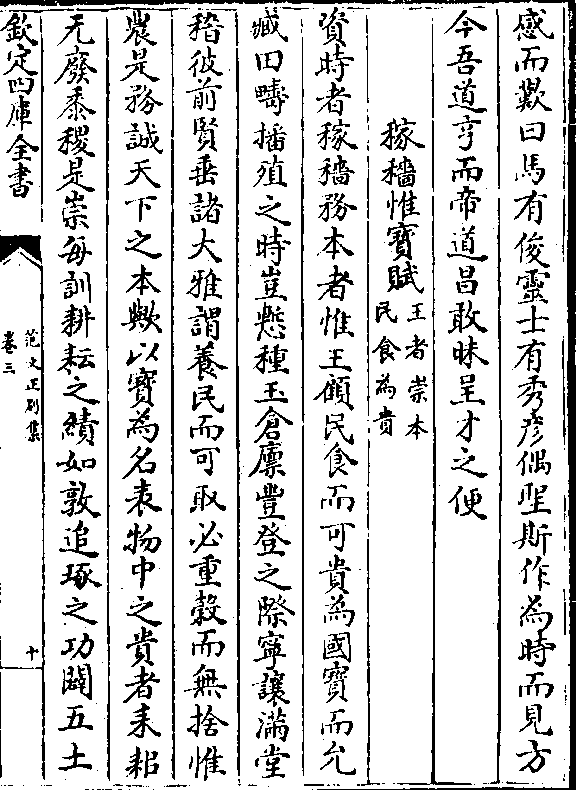 感而歎曰馬有俊靈士有秀彦偶聖斯作為時而見方
今吾道亨而帝道昌敢昧呈才之便
稼穡惟寳賦王者崇本
民食為貴
資時者稼穡務本者惟王顧民食而可貴為國寳而允
臧田疇播殖之時豈慙種玉倉廪豐登之際寧讓滿堂
稽彼前賢垂諸大雅謂養民而可取必重穀而無捨惟
農是務誠天下之本歟以寳為名表物中之貴者耒耜
无廢黍稷是崇每訓耕耘之績如敦追琢之功闢五土
欽定四庫全書
范文正别集
卷三
十